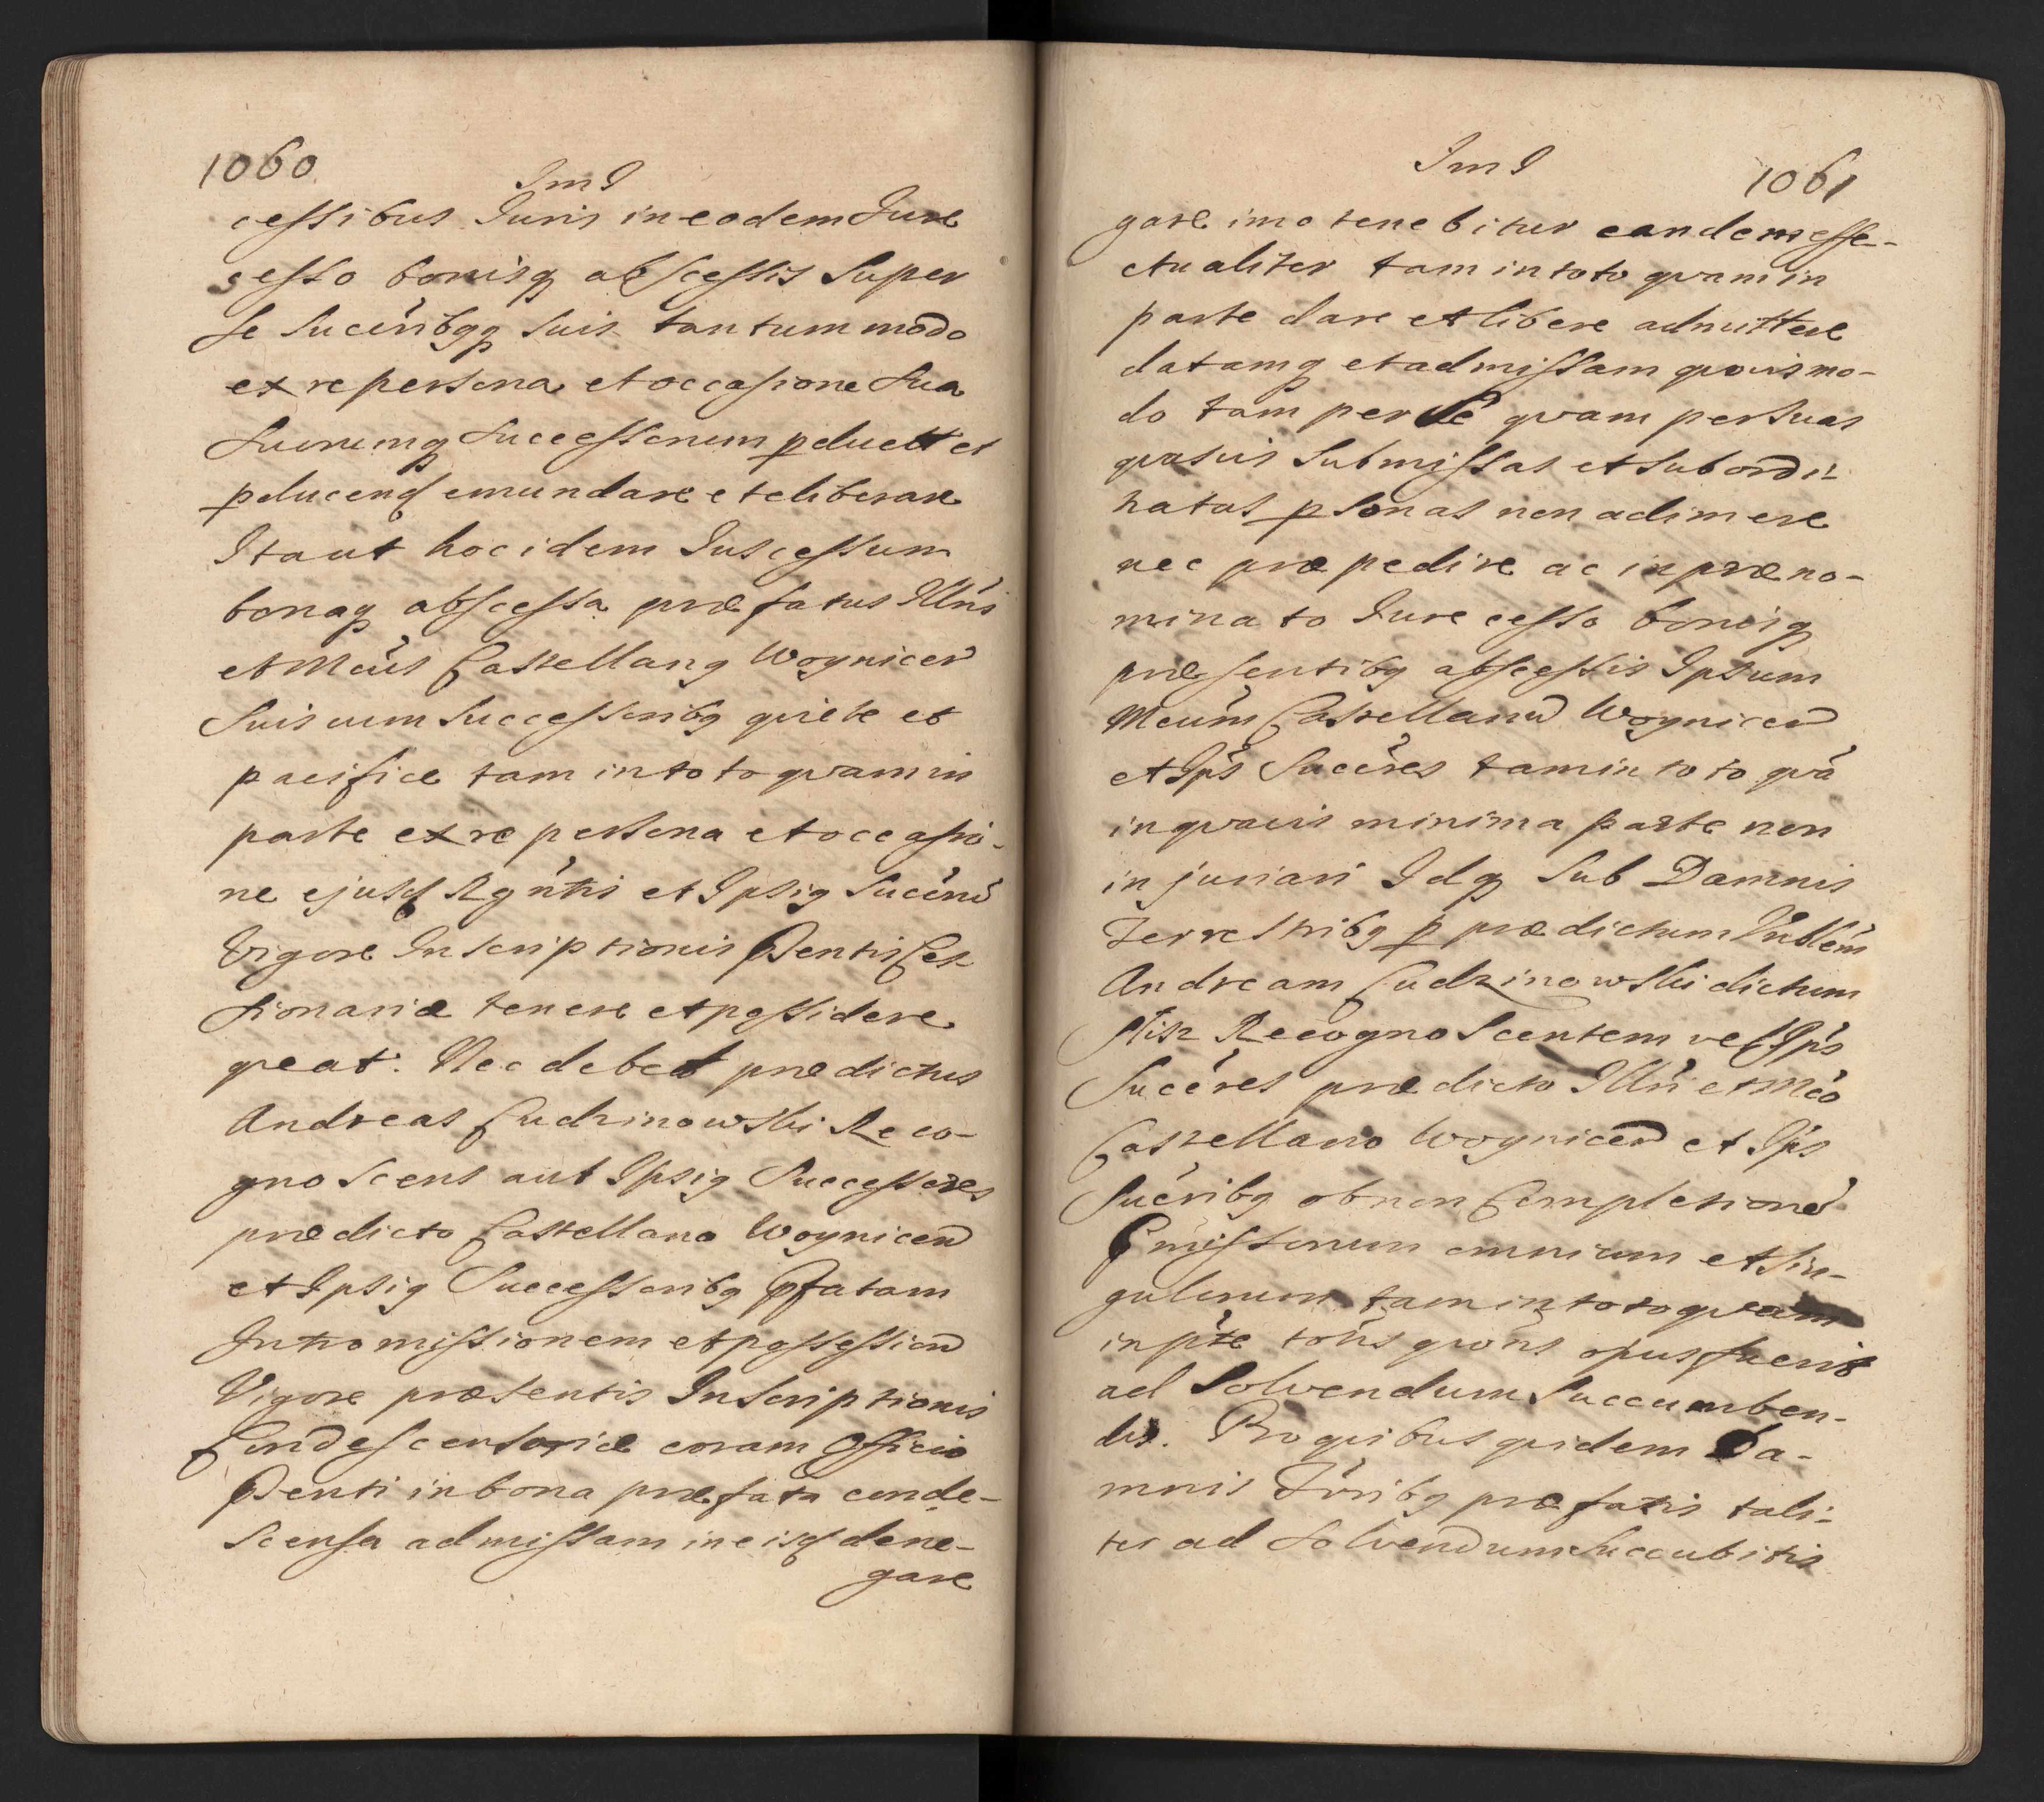 1060
Im I
cessibus Juris in eodem Jure
cesso bonisq abscessis Super
se Succeribqq Suis tantummodo
ex re persona et occasione Sua
Suorumq Successorum pduct et
pducend emundare et eliberare
Itaut hoc idem Jus cessum
bonaq abscessa præfatus Illris
et Mcus Castellanq Woynicen
Suis cum Successoribq quiete et
pacifice tam in toto qvam in
parte ex re persona et occasio-
ne ejusd Rgntis et Ipsiq Succrum
Vigore Inscriptionis Pntis Ces-
sionariæ tenere et possidere
qveat. Nec debet prædictus
Andreas Cudzinowski Reco-
gnoscens aut Ipsiq Successores
prædicto Castellano Woynicen
et Ipsiq Successoribq Pfatam
Intromissionem et possession
Vigore præsentis Inscriptionis
Condescensoriæ coram Officio
Pnti in bona præfata conde-
scensa admissam in eisd dene-
gare
Im I
1061
gare imo tenebitur eandem effe-
ctualiter tam in toto qvam in
parte dare et libere admittere
datamq et admissam qvovismo-
do tam per Se qvam per Suas
qvasvis Submissas et Subordi-
natas psonas non adimere
nec præpedire ac in præno-
minato Jure cesso bonisq
præsentibq abscessis Ipsum
Mcum Castellanum Woynicen
et Ips Succres tam in toto qva
in qvavis minima parte non
injuriari Idq Sub Damnis
Terrestribq p prædictum Gnblem
Andream Cudzinowski dictum
Ptis Recognoscentem vel Ips
Succeres prædicto Illri et Mco
Castellano Woynicen et Ips
Sucribq ob non Completionem
Pmissorum omnium et Sin-
gulorum tam in toto qvam
in pte toties qvoties opus fuerit
ad Solvendum Succumben-
dis. Pro qvibus qvidem Da-
mnis Trribq præfatis tali-
ter ad Solvendum Succubitis